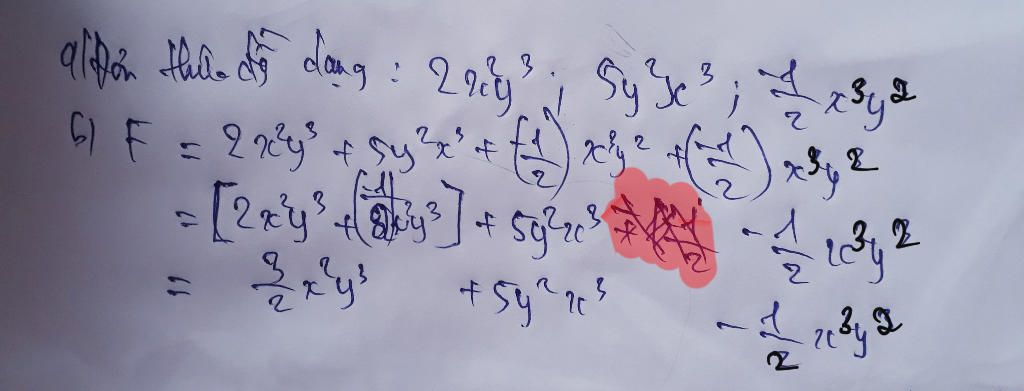 a) Đơn thức đồ dạng : 2x²y³ ; 5y²x³ ; -1/2 x³y²
b) F = 2x²y³ + 5y²x³ + (-1/2) x³y² + (-1/2) x³y²
= [2x²y³ + (-1/2)x²y³] + 5y²x³ - 1/2 x³y²
= 3/2 x²y³ + 5y²x³ - 1/2 x³y²